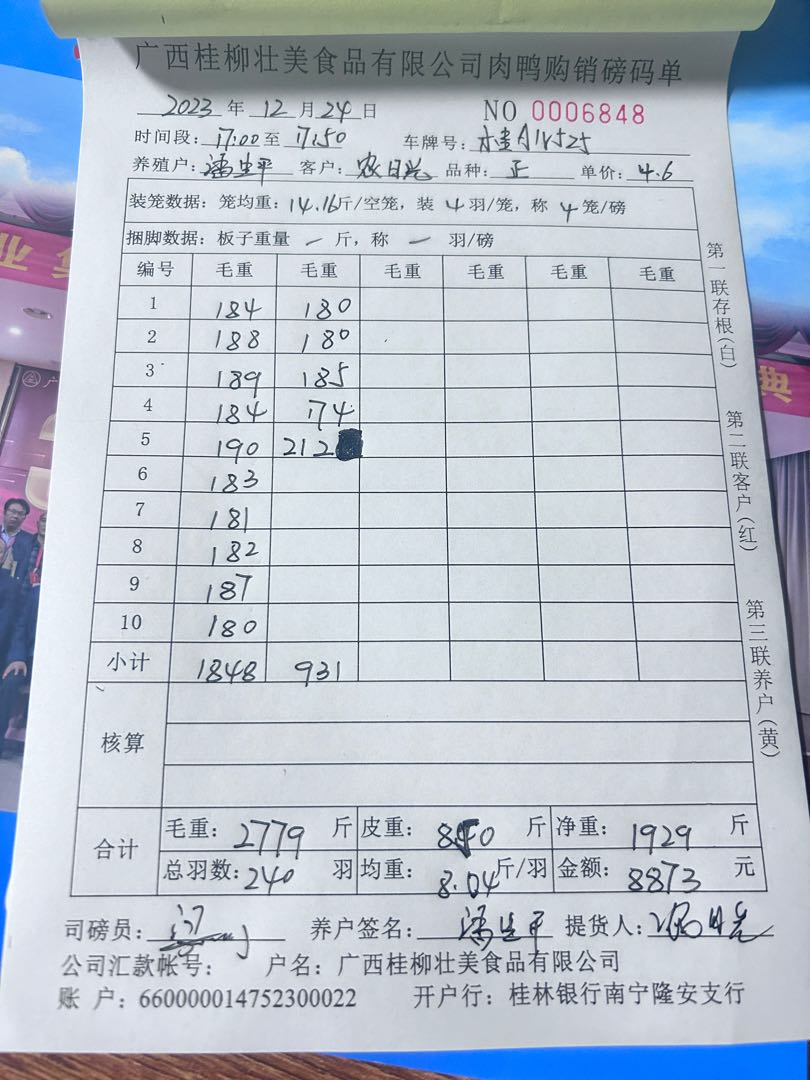 广西桂柳壮美食品有限公司肉鸭购销磅码单
2023 年 12 月 24 日 NO 0006848
时间段: 17:00 至 17:50 车牌号: 桂A
养殖户: 潘生平 客户: 农日 品种: 正 单价: 4.6
装笼数据: 笼均重: 14.16 斤/空笼, 装 4 羽/笼, 称 4 笼/磅
捆脚数据: 板子重量 一 斤, 称 一 羽/磅
编号 毛重 毛重 毛重 毛重 毛重 毛重
1 184 180
2 188 180
3 189 185
4 184 174
5 190 212
6 183
7 181
8 182
9 187
10 180
小计 1848 931
核算
合计 毛重: 2779 斤 皮重: 850 斤 净重: 1929 斤
总羽数: 240 羽 均重: 8.04 斤/羽 金额: 8873 元
司磅员: 养户签名: 潘生平 提货人:
公司汇款帐号: 户名: 广西桂柳壮美食品有限公司
账 户: 660000014752300022 开户行: 桂林银行南宁隆安支行
第一联存根(白)
第二联客户(红)
第三联养户(黄)